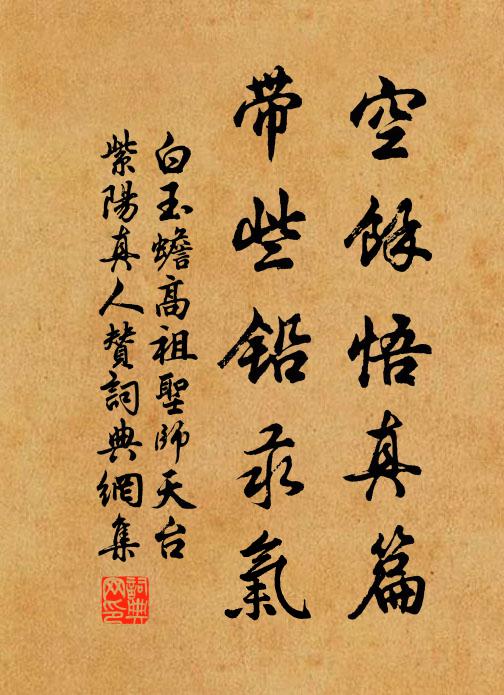 空餘悟真篇
帶些鉛汞氣
白玉蟾高祖聖師天台
紫陽真人贊詞典網集
詞典网印